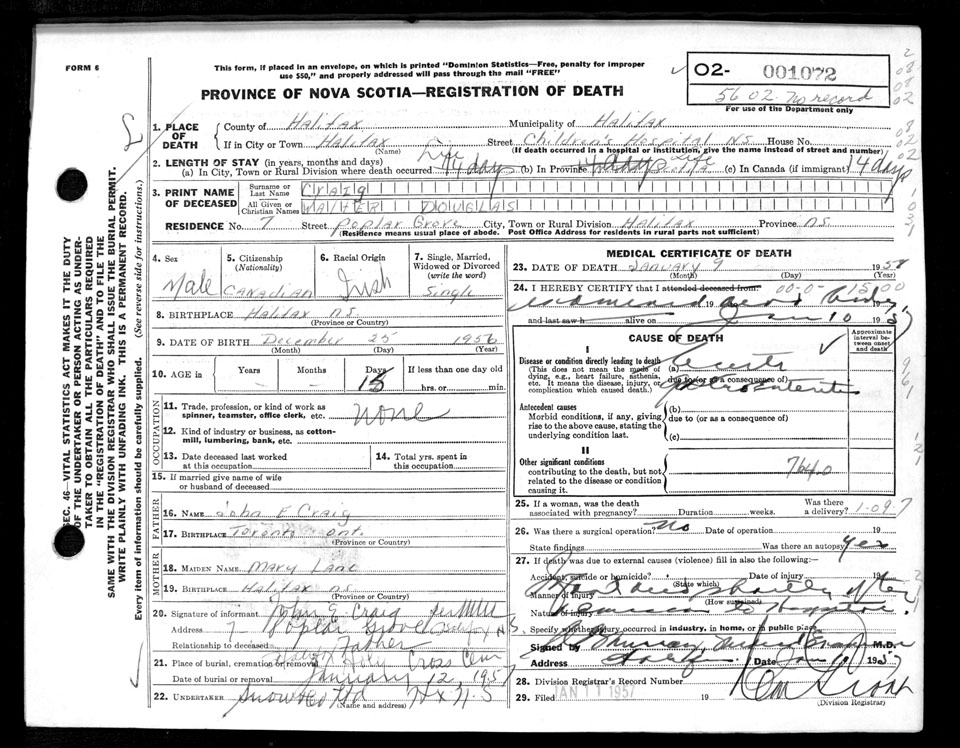 FORM 6
This form, if placed in an envelope, on which is printed "Dominion Statistics—Free, penalty for improper
use $50," and properly addressed will pass through the mail "FREE"
PROVINCE OF NOVA SCOTIA—REGISTRATION OF DEATH
02- 001072
5602 no record
For use of the Department only
SEC. 46—VITAL STATISTICS ACT MAKES IT THE DUTY
OF THE UNDERTAKER OR PERSON ACTING AS UNDER-
TAKER TO OBTAIN ALL THE PARTICULARS REQUIRED
IN THE "REGISTRATION OF DEATH" AND TO FILE THE
SAME WITH THE DIVISION REGISTRAR WHO SHALL ISSUE THE BURIAL PERMIT.
WRITE PLAINLY WITH UNFADING INK. THIS IS A PERMANENT RECORD.
Every item of information should be carefully supplied. (See reverse side for instructions.)
1. PLACE OF DEATH
County of Halifax Municipality of Halifax
If in City or Town Halifax Street Children's Hospital NS House No.
(Name) (If death occurred in a hospital or institution, give the name instead of street and number)
2. LENGTH OF STAY (in years, months and days) Life
(a) In City, Town or Rural Division where death occurred 14 days (b) In Province 14 days Life (c) In Canada (if immigrant) 14 days
3. PRINT NAME OF DECEASED
Surname or Last Name Craig
All Given or Christian Names WALTER DOUGLAS
RESIDENCE No. 7 Street Poplar Grove City, Town or Rural Division Halifax Province N.S.
(Residence means usual place of abode. Post Office Address for residents in rural parts not sufficient)
4. Sex Male
5. Citizenship (Nationality) CANADIAN
6. Racial Origin Irish
7. Single, Married, Widowed or Divorced (write the word) Single
8. BIRTHPLACE Halifax N.S.
(Province or Country)
9. DATE OF BIRTH December 25 1956
(Month) (Day) (Year)
10. AGE in Years Months Days 15 If less than one day old
hrs. or min.
OCCUPATION
11. Trade, profession, or kind of work as
spinner, teamster, office clerk, etc. none
12. Kind of industry or business, as cotton-
mill, lumbering, bank, etc.
13. Date deceased last worked
at this occupation
14. Total yrs. spent in
this occupation
15. If married give name of wife
or husband of deceased
FATHER
16. NAME John E Craig
17. BIRTHPLACE Toronto Ont.
(Province or Country)
MOTHER
18. MAIDEN NAME Mary Lane
19. BIRTHPLACE Halifax N.S.
(Province or Country)
20. Signature of informant John E. Craig
Address 7 Poplar Grove Halifax N.S.
Relationship to deceased Father
21. Place of burial, cremation or removal Holy Cross Cem
Date of burial or removal January 12, 1957
22. UNDERTAKER Snow & Co Ltd Hfx N.S
(Name and address)
MEDICAL CERTIFICATE OF DEATH
23. DATE OF DEATH January 9 1957
(Month) (Day)
24. I HEREBY CERTIFY that I attended deceased from: 00-0- 1500
examined dead body
and last saw h alive on Jan 10 1957
CAUSE OF DEATH
Approximate interval between onset and death
I
Disease or condition directly leading to death
(This does not mean the mode of
dying, e.g., heart failure, asthenia,
etc. It means the disease, injury, or
complication which caused death.)
(a) Acute
due to (or as a consequence of)
Gastroenteritis
Antecedent causes
Morbid conditions, if any, giving
rise to the above cause, stating the
underlying condition last.
(b)
due to (or as a consequence of)
(c)
II
Other significant conditions
contributing to the death, but not
related to the disease or condition
causing it.
764.0
25. If a woman, was the death
associated with pregnancy? Duration weeks. Was there a delivery?
1-097
26. Was there a surgical operation? No Date of operation 19
State findings Was there an autopsy yes
27. If death was due to external causes (violence) fill in also the following:
Accident, suicide or homicide? Date of injury 19
(State which)
Manner of injury died shortly after
(How sustained)
Nature of injury admission to hospital.
Specify whether injury occurred in industry, in home, or in public place
Signed by M.D.
Address Halifax Date Jan 1957
28. Division Registrar's Record Number
29. Filed JAN 11 1957 19
(Division Registrar)